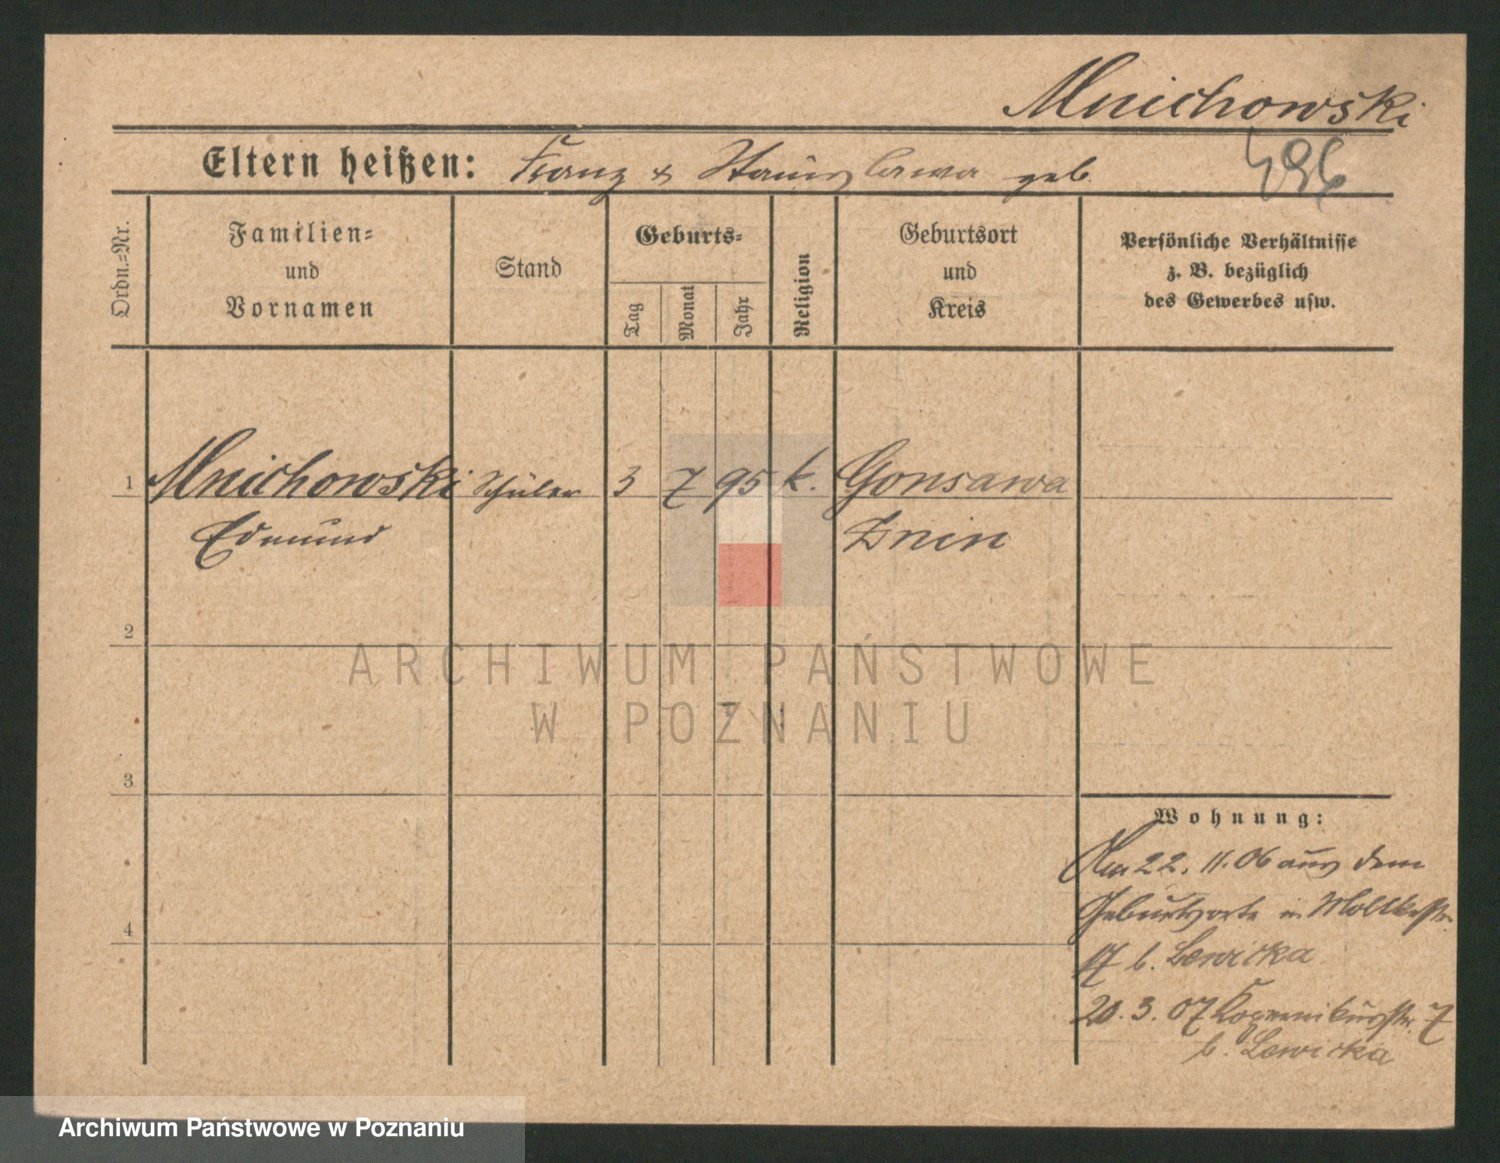 Mnichowski
496
Eltern heißen: Franz & Stanislawa geb.
Ordn.=Nr.
Familien=
und
Vornamen
Stand
Geburts=
Tag
Monat
Jahr
Religion
Geburtsort
und
Kreis
Persönliche Verhältnisse
z. B. bezüglich
des Gewerbes usw.
1 Mnichowski Schüler 3 7 95 k. Gonsawa
Edmund Znin
2
ARCHIWUM PAŃSTWOWE
W POZNANIU
3
Wohnung:
Am 22. 11. 06 aus dem
Geburtsorte n. Moltkestr.
17 b. Lewicka
4
20. 3. 07 Kopernikusstr. 7
b. Lewicka
Archiwum Państwowe w Poznaniu